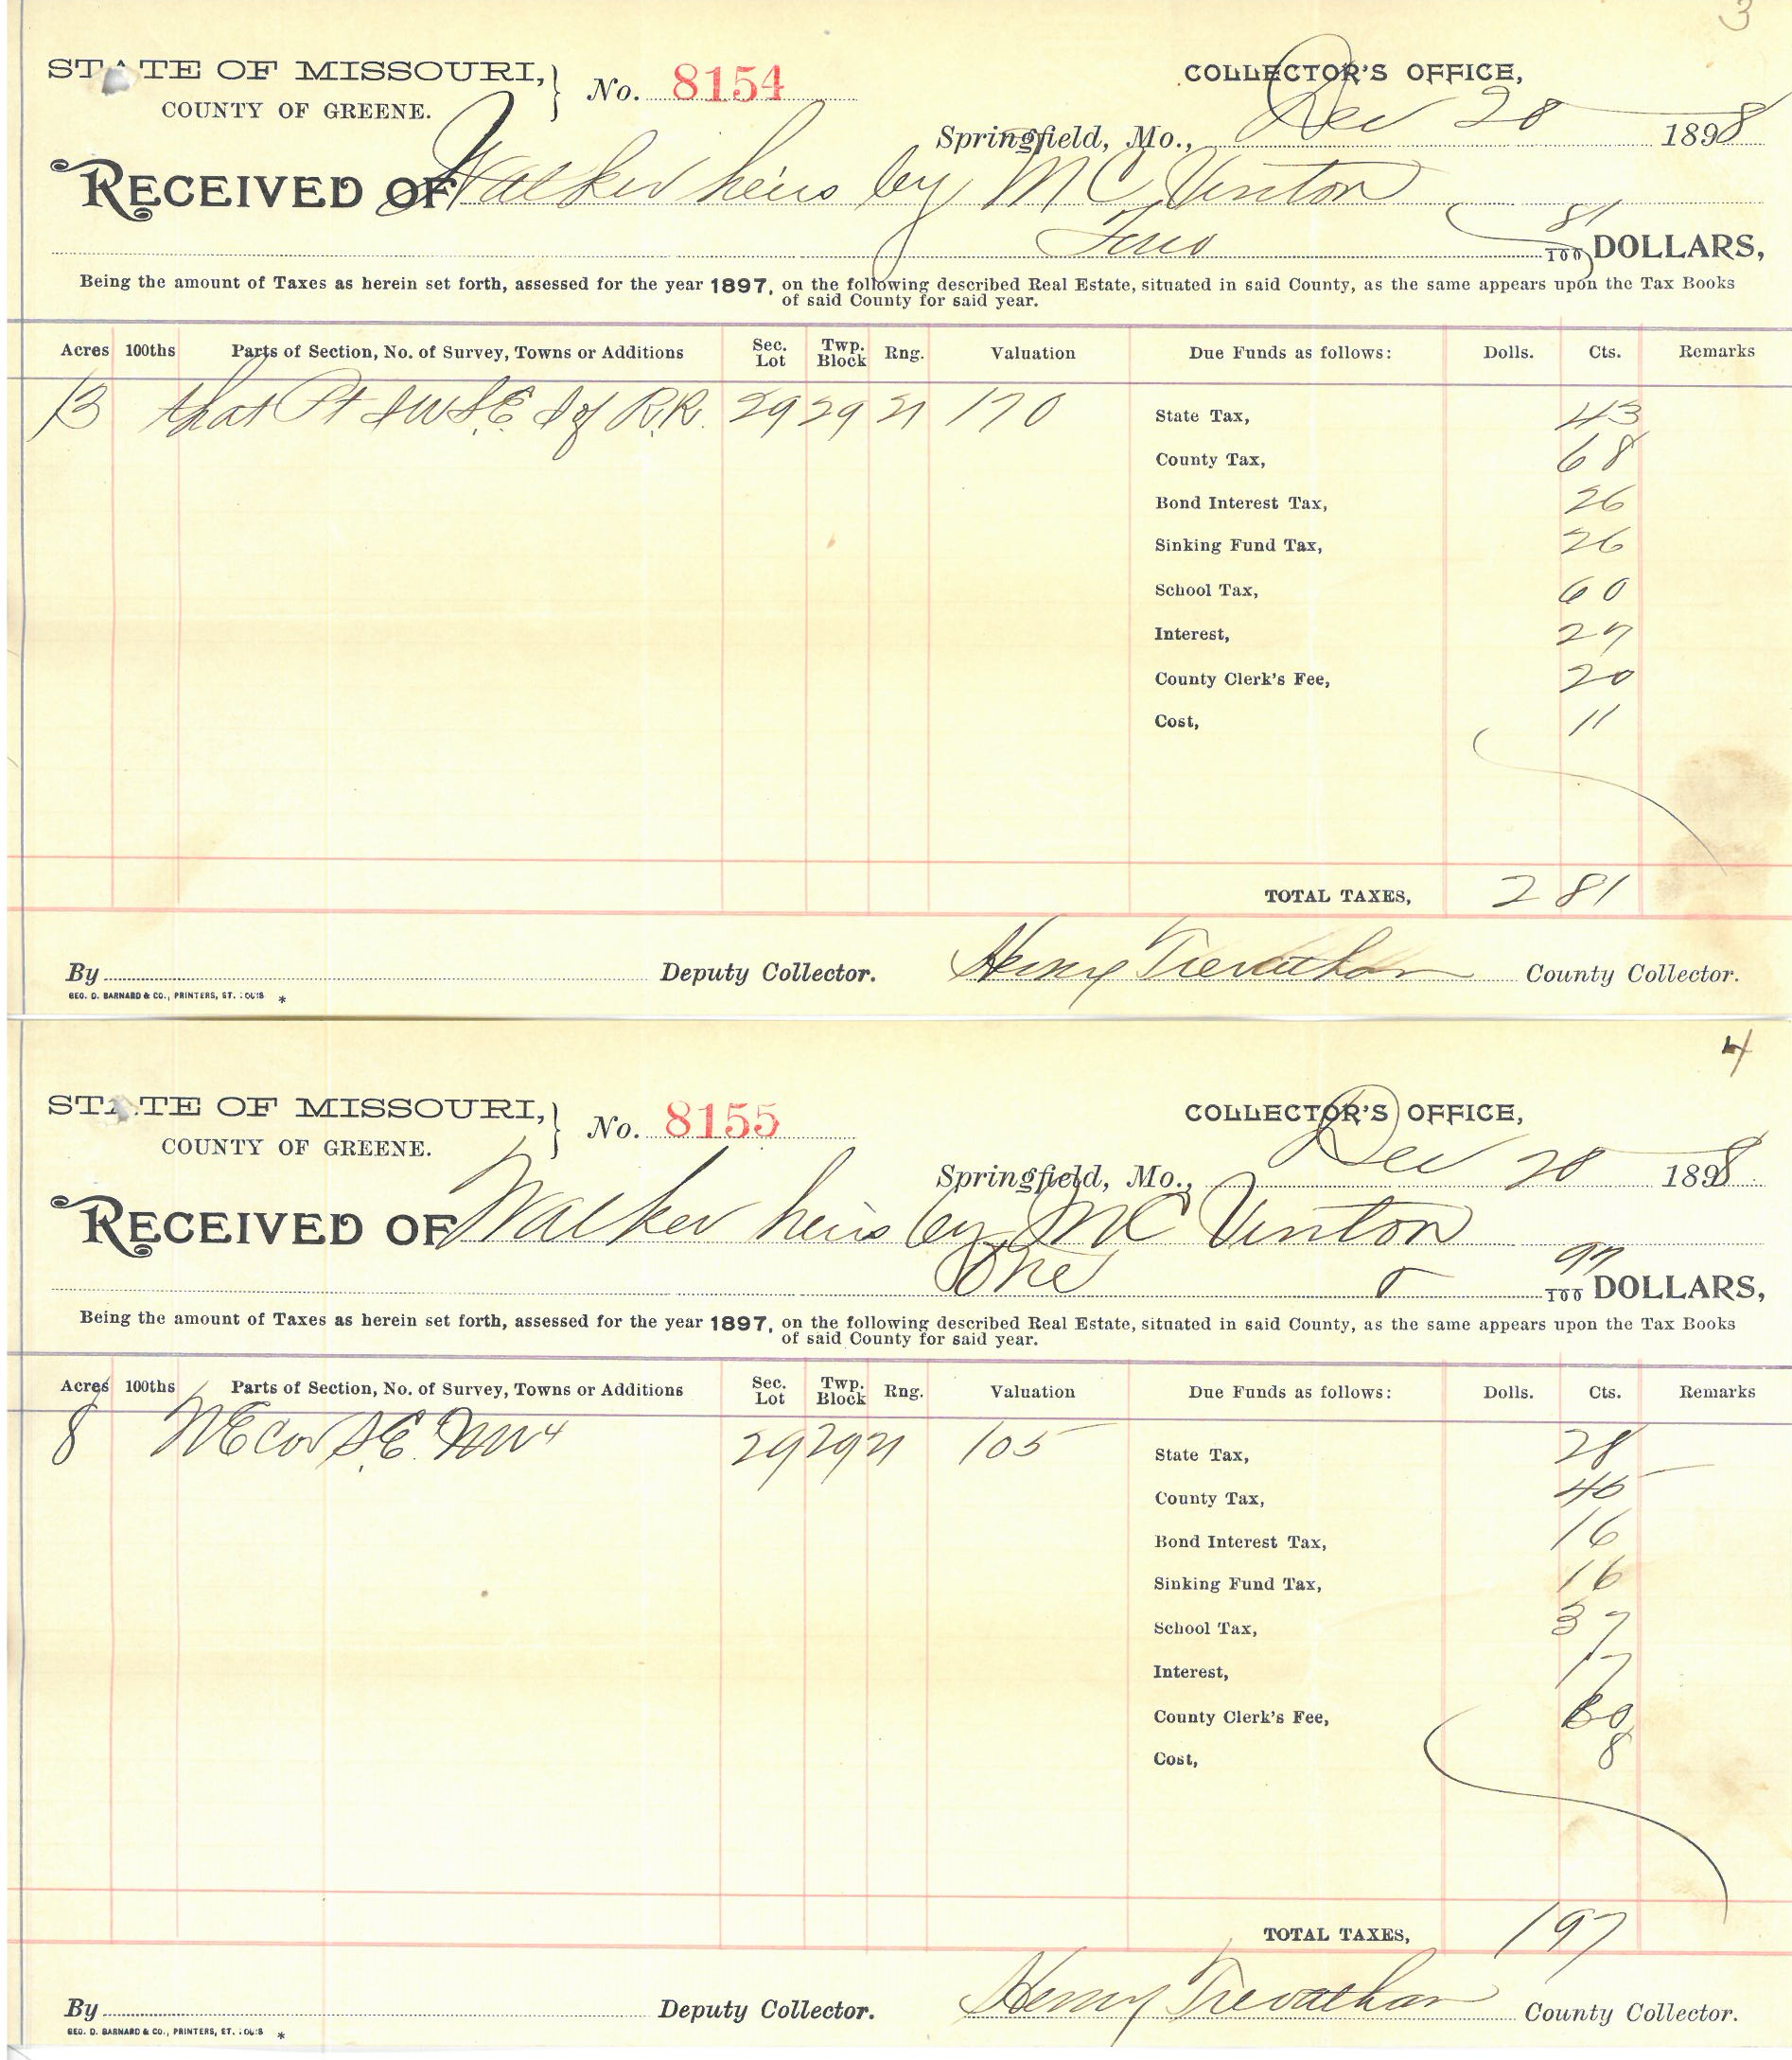 3
STATE OF MISSOURI, } No. 8154 COLLECTOR'S OFFICE,
COUNTY OF GREENE. Springfield, Mo., Dec 28 1898
RECEIVED OF Walker heirs by M C Vinton
Two 81/100 DOLLARS,
Being the amount of Taxes as herein set forth, assessed for the year 1897, on the following described Real Estate, situated in said County, as the same appears upon the Tax Books
of said County for said year.
Acres 100ths Parts of Section, No. of Survey, Towns or Additions Sec. Lot Twp. Block Rng. Valuation Due Funds as follows: Dolls. Cts. Remarks
13 that Pt SW S.E. S of R.R. 29 29 21 170 State Tax, 43
County Tax, 68
Bond Interest Tax, 26
Sinking Fund Tax, 26
School Tax, 60
Interest, 27
County Clerk's Fee, 20
Cost, 11
TOTAL TAXES, 2 81
By Deputy Collector. Henry Trevathan County Collector.
GEO. D. BARNARD & CO., PRINTERS, ST. LOUIS *
4
STATE OF MISSOURI, } No. 8155 COLLECTOR'S OFFICE,
COUNTY OF GREENE. Springfield, Mo., Dec 28 1898
RECEIVED OF Walker heirs by M C Vinton
One 97/100 DOLLARS,
Being the amount of Taxes as herein set forth, assessed for the year 1897, on the following described Real Estate, situated in said County, as the same appears upon the Tax Books
of said County for said year.
Acres 100ths Parts of Section, No. of Survey, Towns or Additions Sec. Lot Twp. Block Rng. Valuation Due Funds as follows: Dolls. Cts. Remarks
8 NE cor S.E. NW4 29 29 21 105 State Tax, 28
County Tax,
Bond Interest Tax, 16
Sinking Fund Tax, 16
School Tax, 37
Interest, 17
County Clerk's Fee,
Cost, 8
TOTAL TAXES, 1 97
By Deputy Collector. Henry Trevathan County Collector.
GEO. D. BARNARD & CO., PRINTERS, ST. LOUIS *